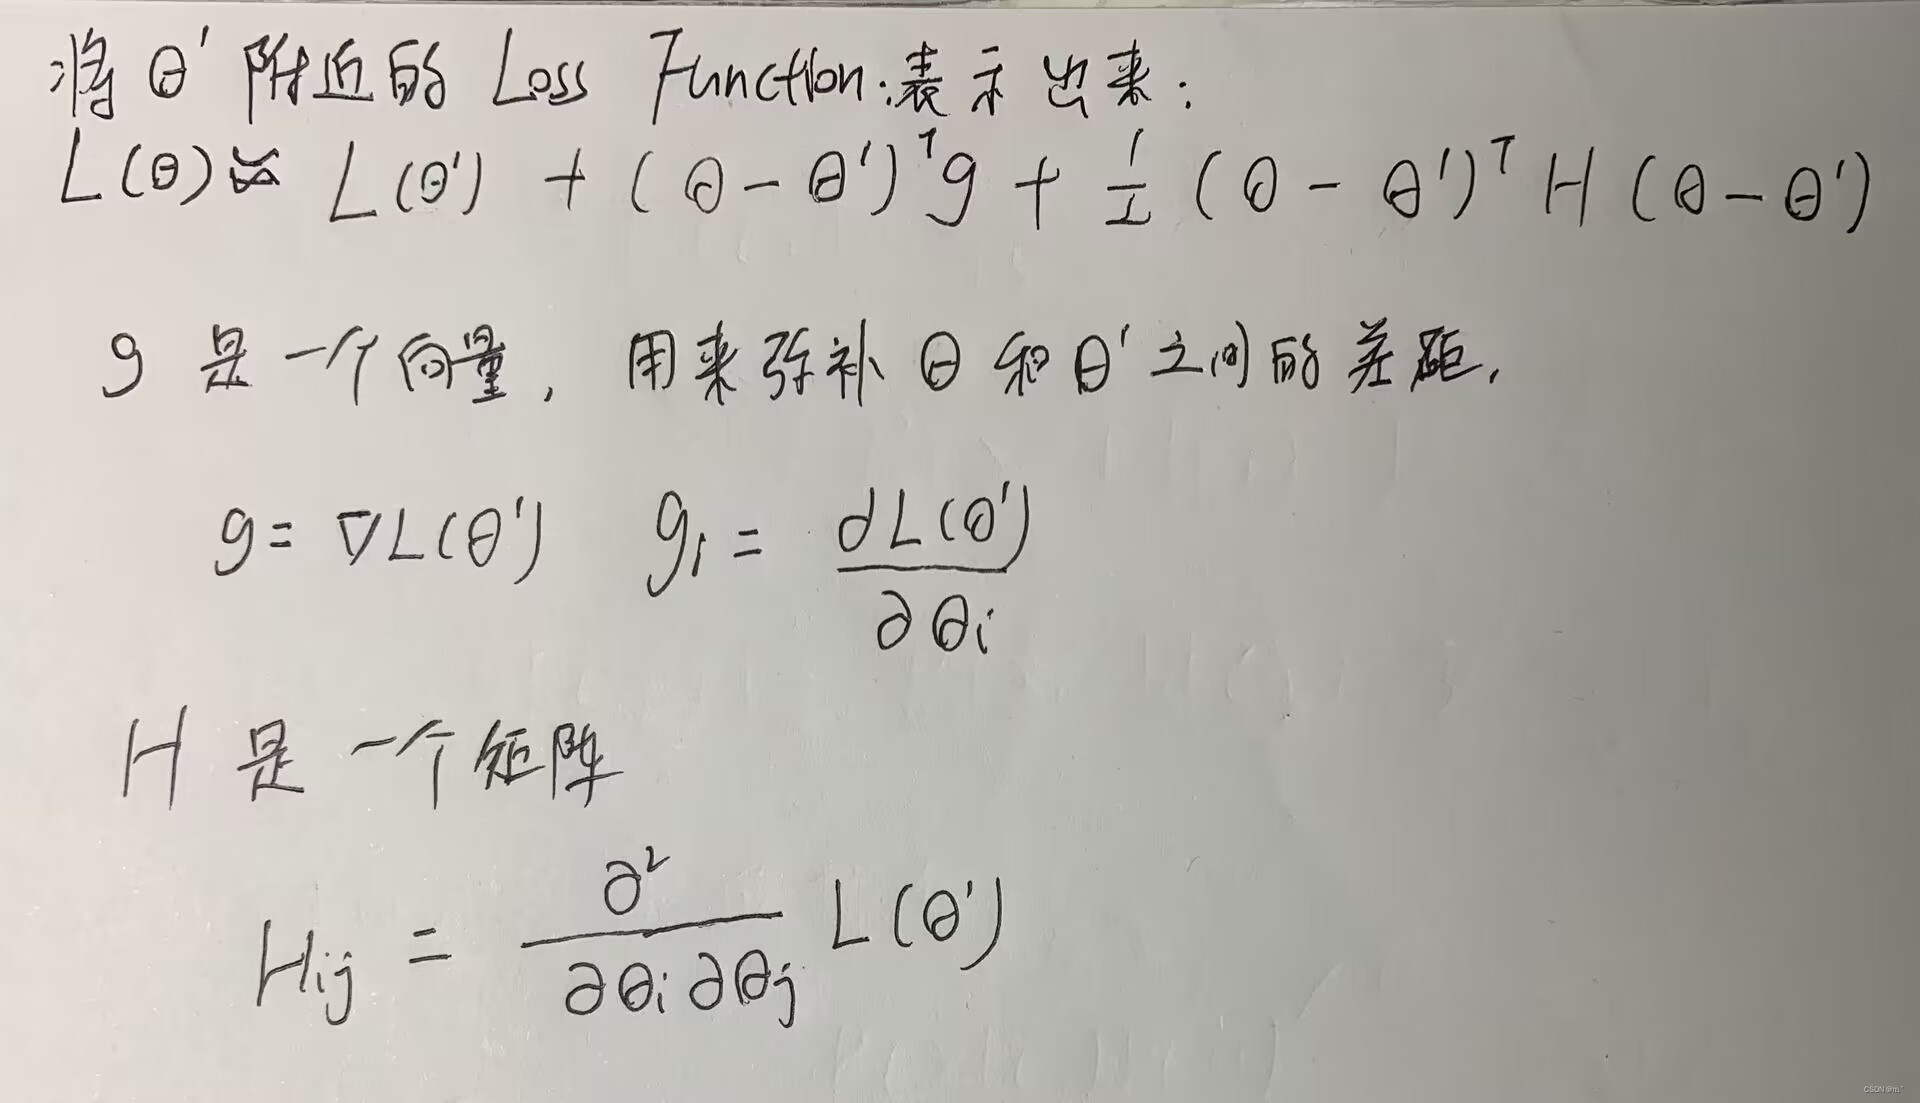 将 θ' 附近的 Loss Function:表示出来:
L(θ) ≈ L(θ') + (θ-θ')ᵀg + 1/2 (θ-θ')ᵀ H (θ-θ')
g 是一个向量, 用来弥补 θ 和 θ' 之间的差距.
g = ∇L(θ')  gᵢ = ∂L(θ')/∂θi
H 是一个矩阵
Hij = ∂²/∂θi∂θj L(θ')